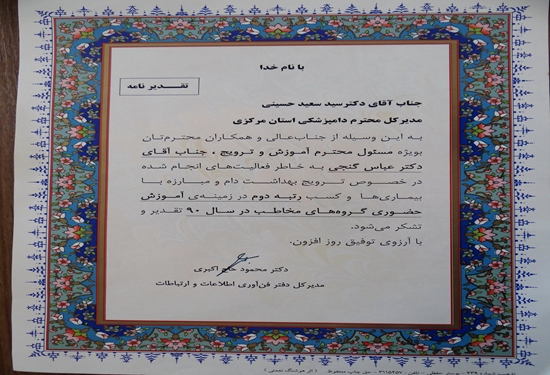 با نام خدا
تقدیر نامه
جناب آقای دکترسید سعید حسینی
مدیرکل محترم دامپزشکی استان مرکزی
به این وسیله از جناب‌عالی و همکاران محترم‌تان
بویژه مسئول محترم آموزش و ترویج ، جناب آقای
دکتر عباس گنجی به خاطر فعالیت‌های انجام شده
در خصوص ترویج بهداشت دام و مبارزه با
بیماری‌ها و کسب رتبه دوم در زمینه‌ی آموزش
حضوری گروه‌های مخاطب در سال ۹۰ تقدیر و
تشکر می‌شود.
با آرزوی توفیق روز افزون.
دکتر محمود حاج اکبری
مدیرکل دفتر فن‌آوری اطلاعات و ارتباطات